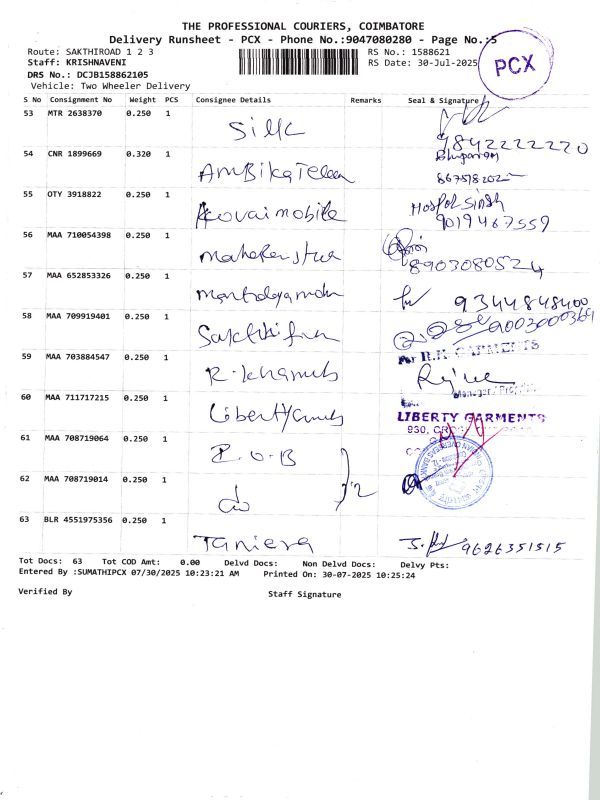 THE PROFESSIONAL COURIERS, COIMBATORE
Delivery Runsheet - PCX - Phone No.:9047080280 - Page No.:5
Route: SAKTHIROAD 1 2 3
Staff: KRISHNAVENI
DRS No.: DCJB158862105
Vehicle: Two Wheeler Delivery
RS No.: 1588621
RS Date: 30-Jul-2025
PCX
S No Consignment No Weight PCS Consignee Details Remarks Seal & Signature
53 MTR 2638370 0.250 1 Silk 9842222220
54 CNR 1899669 0.320 1 Ambika
55 OTY 3918822 0.250 1 Kovai mobile Hospol Singh
9019467559
56 MAA 710054398 0.250 1
8903080524
57 MAA 652853326 0.250 1 9344848400
58 MAA 709919401 0.250 1 9003000364
59 MAA 703884547 0.250 1 For R.K. GARMENTS
60 MAA 711717215 0.250 1 Liberty
LIBERTY GARMENTS
930,
61 MAA 708719064 0.250 1 I.O.B
62 MAA 708719014 0.250 1 do
63 BLR 4551975356 0.250 1 Taniera 9626351515
Tot Docs: 63 Tot COD Amt: 0.00 Delvd Docs: Non Delvd Docs: Delvy Pts:
Entered By :SUMATHIPCX 07/30/2025 10:23:21 AM Printed On: 30-07-2025 10:25:24
Verified By Staff Signature